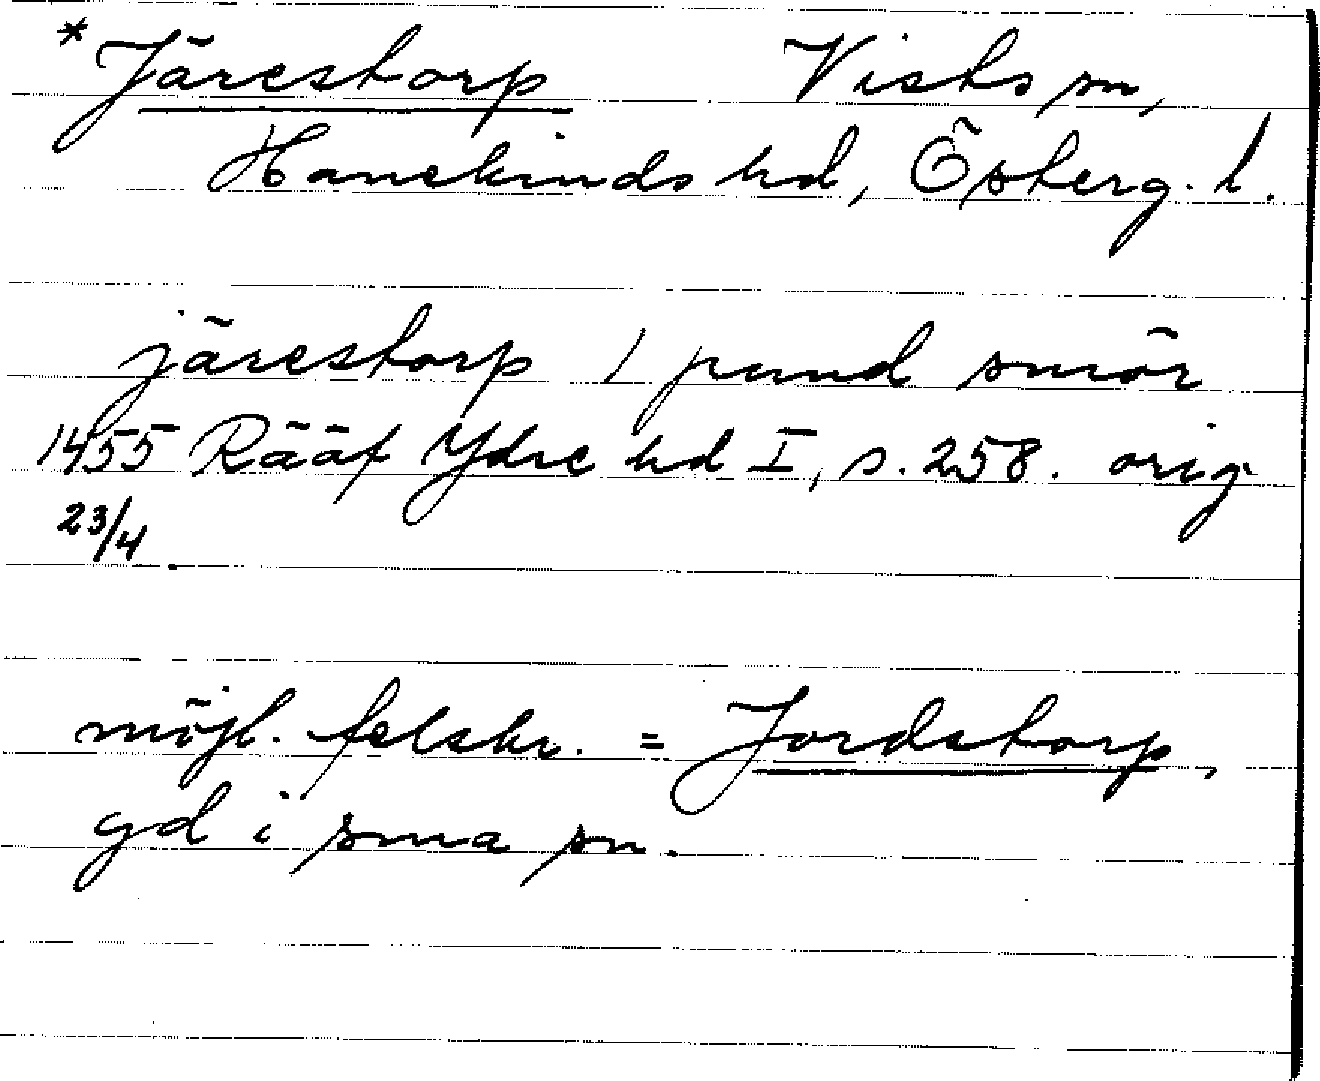 * Järestorp Vists sn,
Hanekinds hd, Österg. l.
järestorp 1 pund smör
1455 Rääf Ydre hd I, s. 258. orig
23/4.
möjl. felskr. = Jordstorp,
gd i sma sn.